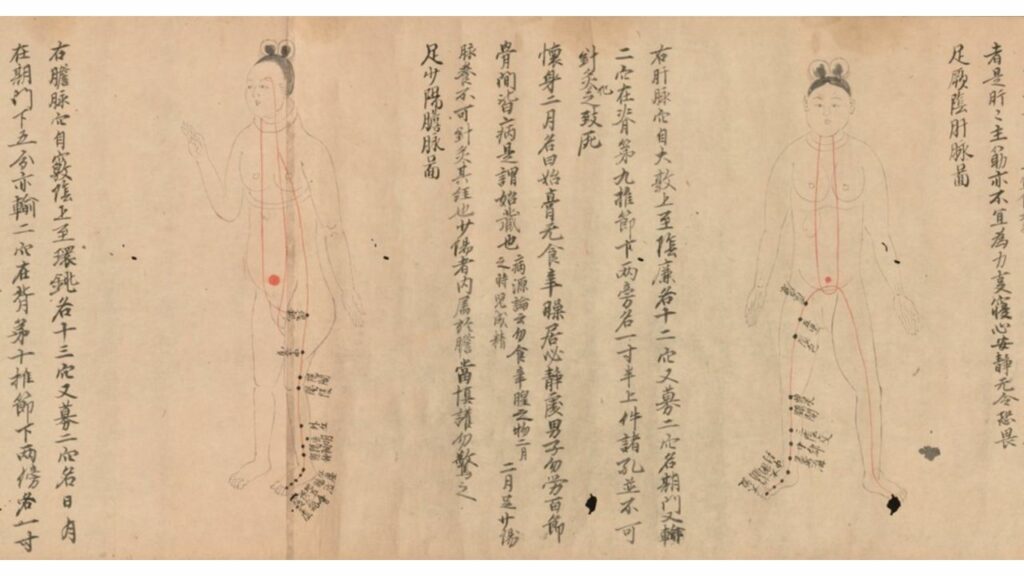 者是肝〻主筋亦不宜為力变寤心安靜无令恐畏
足厥陰肝脉啚
右肝脉穴自大敦上至陰廉各十二穴又募二穴名期門又輸
二穴在脊第九推節下两旁各一寸半上件諸孔並不可
犯
針灸之致死
懷身二月名曰始膏无食辛臊居必静處男子勿劳百節
骨間皆病是謂始藏也
病源論云勿食辛腥之物二月
之時兒成精
二月足少陽
脉養不可針灸其経也少陽者内属於膽當慎護勿驚之
足少陽膽脉啚
右膽脉穴自竅陰上至環銚各十三穴又募二穴名日月
在期門下五分亦輸二穴在背第十推節下两傍各一寸